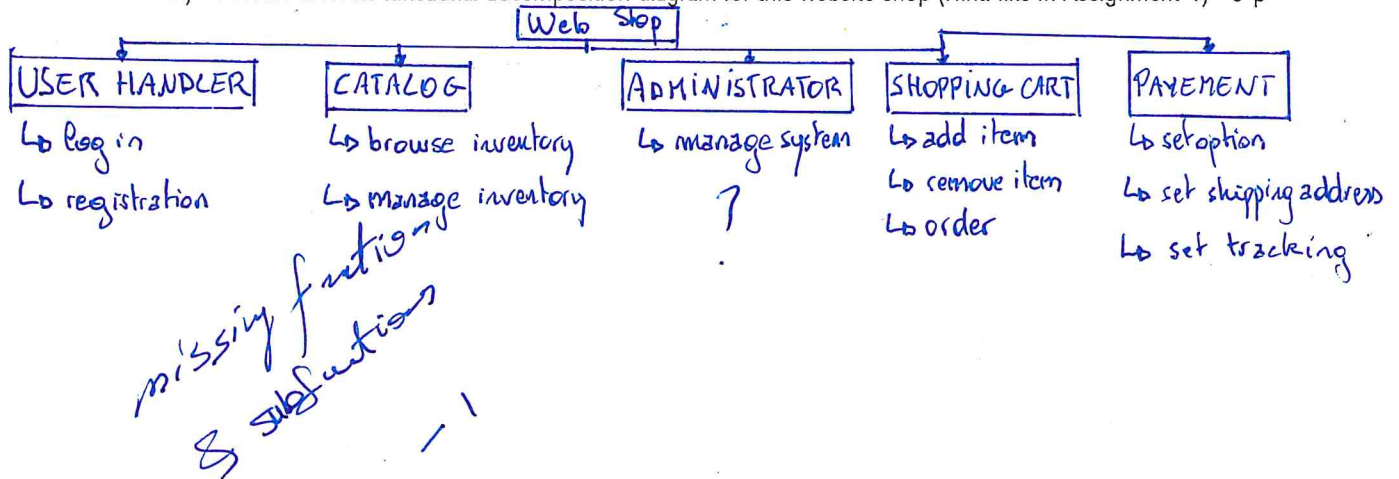 functional decomposition diagram for this website shop
Web Shop
USER HANDLER
↳ log in
↳ registration
CATALOG
↳ browse inventory
↳ manage inventory
ADMINISTRATOR
↳ manage system
?
SHOPPING CART
↳ add item
↳ remove item
↳ order
PAYEMENT
↳ set option
↳ set shipping address
↳ set tracking
missing functions
& subfunctions
-1